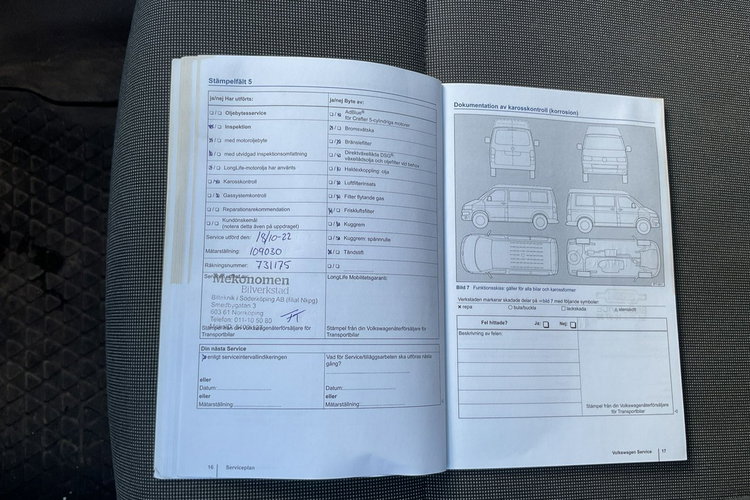 Stämpelfält 5
ja/nej Har utförts:
Oljebytesservice
Inspektion
med motoroljebyte
med utvidgad inspektionsomfattning
LongLife-motorolja har använts
Karosskontroll
Gassystemkontroll
Reparationsrekommendation
Kundönskemål
(notera detta även på uppdraget)
Service utförd den: 18/10-22
Mätarställning: 109030
Räkningsnummer: 731175
Mekonomen
Bilverkstad
Bilteknik i Söderköping AB (filial Nkpg)
Smedbygatan 3
603 61 Norrköping
Telefon: 011-10 50 80
Stämpel från din Volkswagenåterförsäljare för
Transportbilar
ja/nej Byte av:
AdBlue®
för Crafter 5-cylindriga motorer
Bromsvätska
Bränslefilter
Direktväxellåda DSG®:
växellådsolja och oljefilter vid behov
Haldexkoppling: olja
Luftfilterinsats
Filter flytande gas
Friskluftsfilter
Kuggrem
Kuggrem: spännrulle
Tändstift
LongLife Mobilitetsgaranti:
Stämpel från din Volkswagenåterförsäljare för
Transportbilar
Din nästa Service
enligt serviceintervallindikeringen
eller
Datum:
eller
Mätarställning:
Vad för Service/tilläggsarbeten ska utföras nästa
gång?
eller
Datum:
eller
Mätarställning:
16 Serviceplan
Dokumentation av karosskontroll (korrosion)
Bild 7 Funktionsskiss: gäller för alla bilar och karossformer
Verkstaden markerar skadade delar på ⇒bild 7 med följande symboler:
× repa ○ bula/buckla □ lackskada △ stenskott
Fel hittade? Ja: Nej:
Beskrivning av felen:
Stämpel från din Volkswagenåterförsäljare
för Transportbilar
Volkswagen Service 17